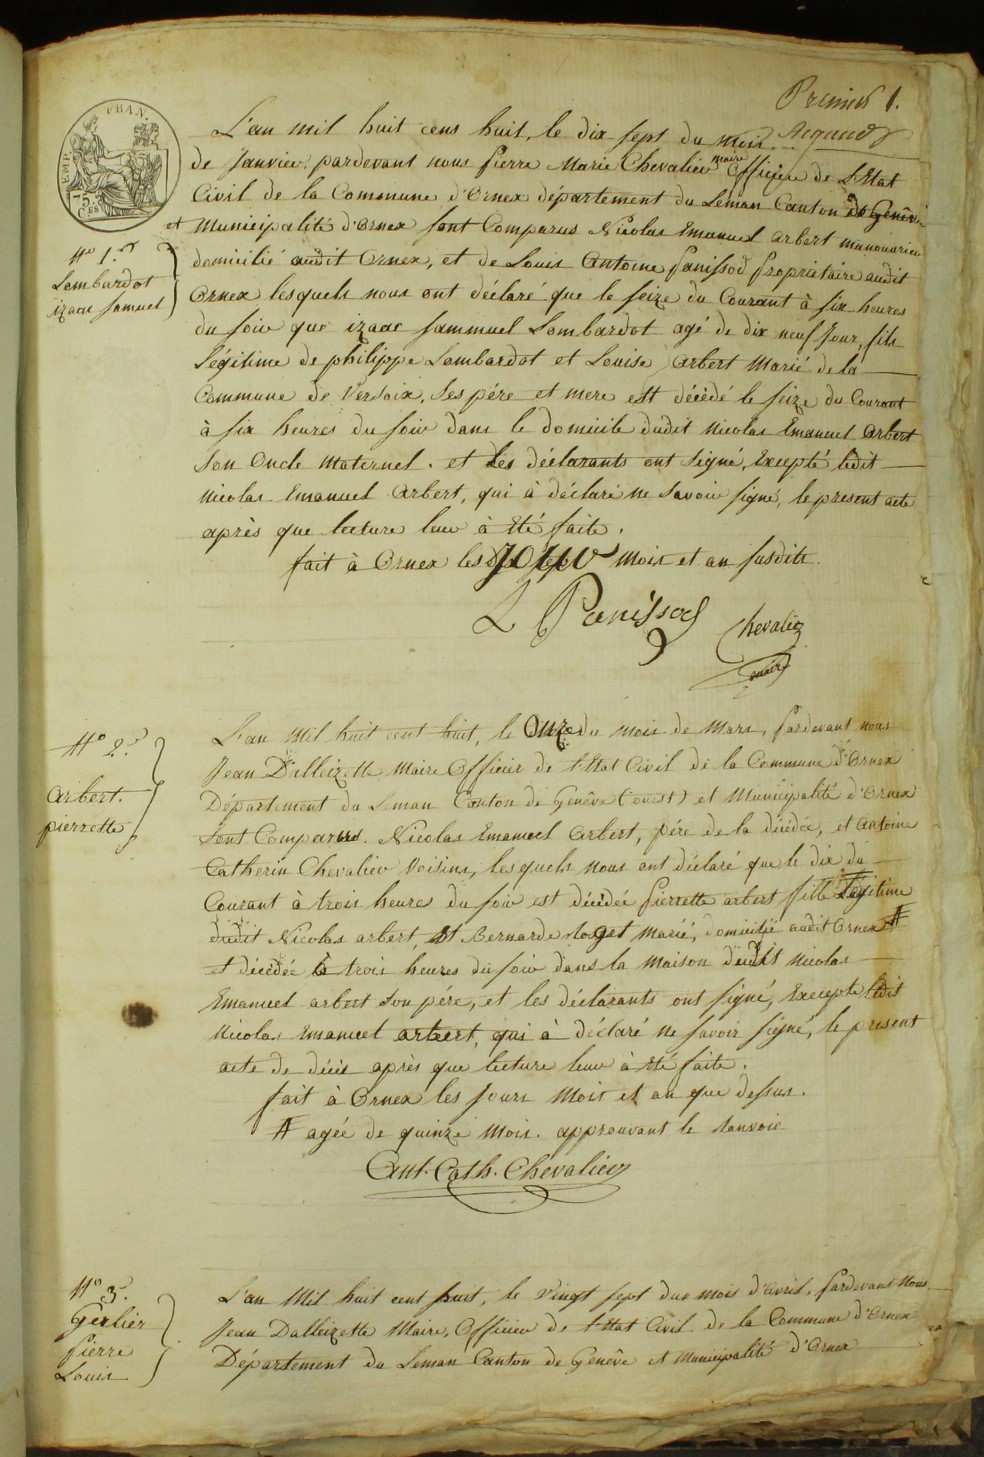 Premier 1.
L'an mil huit cens huit, le dix sept du mois
de Janvier, pardevant nous Pierre Marie Chevalier maire Officier de L'Etat
Civil de la Commune d'Ornex département du Leman Canton de Genêve
et Municipalité d'Ornex sont Comparus Nicolas Emanuel Arbert manouvrier
domicilié audit Ornex, et de Louis Antoine Panissod Proprietaire audit
Ornex lesquels nous ont déclaré que le seize du Courant à six heures
du soir que izaac Sammuel Lombardot agé de dix neuf Jour, fils
Légitime de philippe Lombardot et Louise Arbert Marié de la
Commune de Versoix, Ses pére et mere est décédé le seize du Courant
à six heures du soir dans le domicile dudit Nicolas Emanuel Arbert
Son Oncle Maternel. et Les déclarants ont Signé, Excepté ledit
Nicolas Emanuel Arbert, qui à déclaré ne Savoir signé, le present acte
après que lecture leur à Eté faite.
fait à Ornex les Jour Mois et an susdits.
N° 1.er
Lombardot
izaac Samuel
L Panissod
Chevalier
maire
N° 2.e
Arbert.
pierrette
L'an Mil huit cent huit, le Onze du mois de Mars, Pardevant nous
Jean Dalleizette Maire Officier de l'Etat Civil de la Commune d'Ornex
Département du Leman Canton de Genêve (ouest) et Municipalité d'Ornex
Sont Comparus Nicolas Emanuel Arbert, pére de la décédée, et Antoine
Catherin Chevalier Voisins, lesquels nous ont déclaré que le dix du
Courant à trois heures du soir est décédée Pierrette arbert fille Légitime
dudit Nicolas arbert, et Bernarde Marié, domicilié audit Ornex #
et décédée à trois heures du soir dans la maison dudit Nicolas
Emanuel arbert Son pére, et les déclarants ont signé, Excepté ledit
Nicolas Emanuel arbert, qui à déclaré ne savoir signé, le present
acte de décès après que lecture leur à Eté faite.
fait à Ornex les Jours Mois et an que dessus.
# agée de quinze Mois. approuvant le Ranvoie
Ant. Cath. Chevalier
N° 3.
Gerlier
Pierre
Louis
L'an Mil huit cent huit, le Vingt sept du mois d'avril, Pardevant Nous
Jean Dalleizette Maire, Officier de l'Etat Civil de la Commune d'Ornex
Département du Leman Canton de Genêve et Municipalité d'Ornex